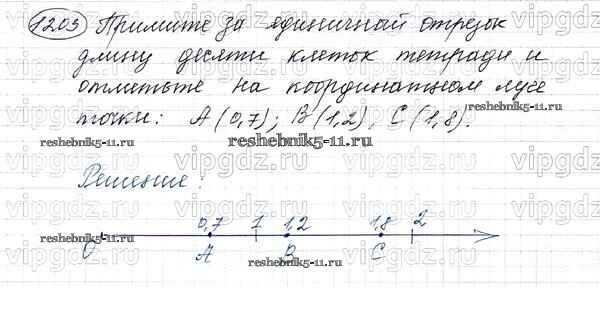 1203 Примите за единичный отрезок
длину десяти клеток тетради и
отметьте на координатном луче
точки: A (0,7); B (1,2), C (1,8).
Решение:
0,7 1 1,2 1,8 2
0 A B C
reshebnik5-11.ru
reshebnik5-11.ru
reshebnik5-11.ru
reshebnik5-11.ru
reshebnik5-11.ru
reshebnik5-11.ru
vipgdz vipgdz vipgdz